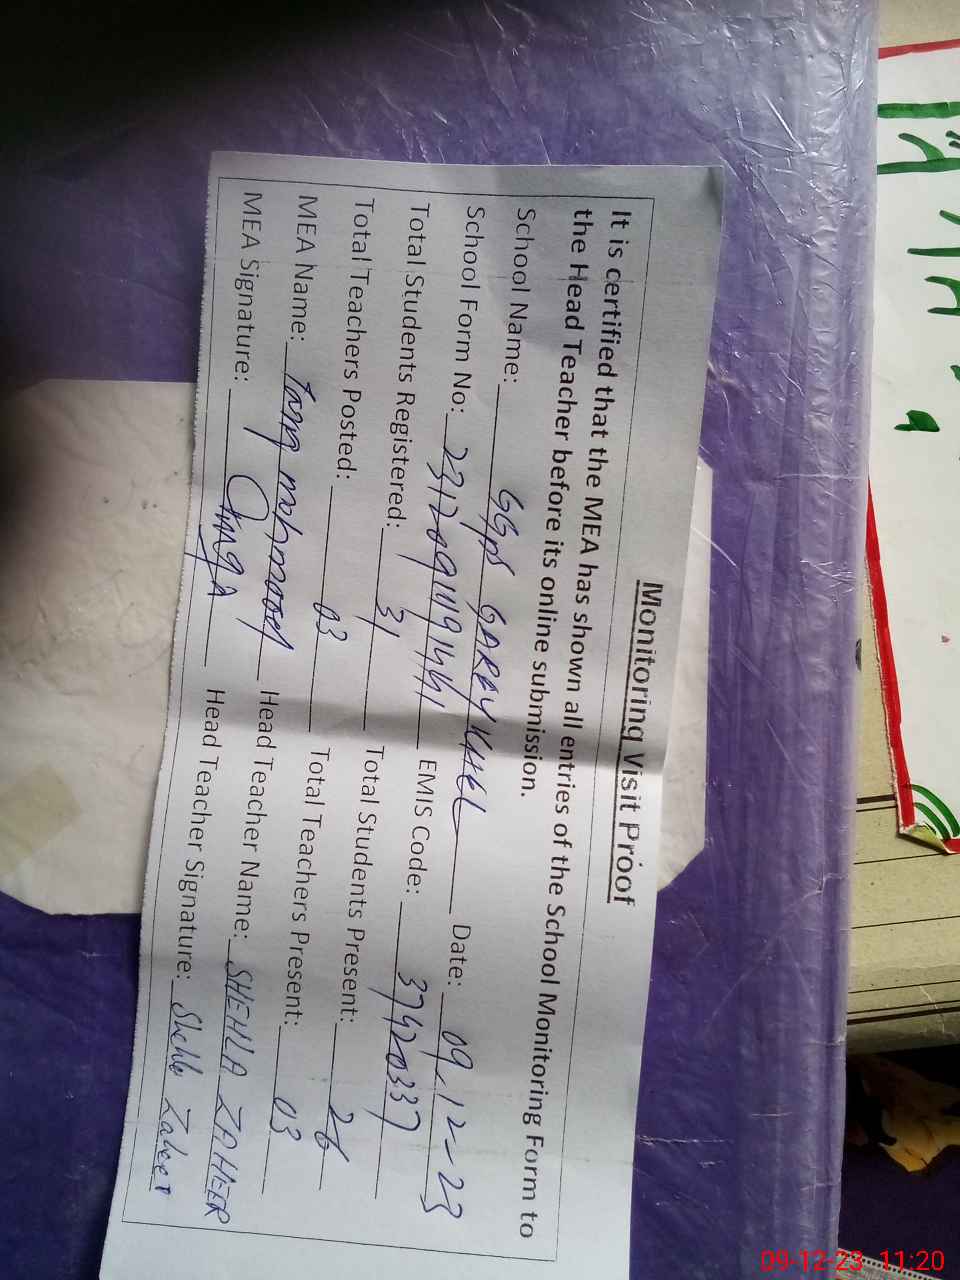 Monitoring Visit Proof
It is certified that the MEA has shown all entries of the School Monitoring Form to
the Head Teacher before its online submission.
School Name: GGPS GAREY KHEL Date: 09.12-23
School Form No: EMIS Code: 37420337
Total Students Registered: 31 Total Students Present: 26
Total Teachers Posted: 03 Total Teachers Present: 03
MEA Name: mehmood Head Teacher Name: SHEHLA ZAHEER
MEA Signature: Head Teacher Signature: Shehla Zaheer
09-12-23 11:20